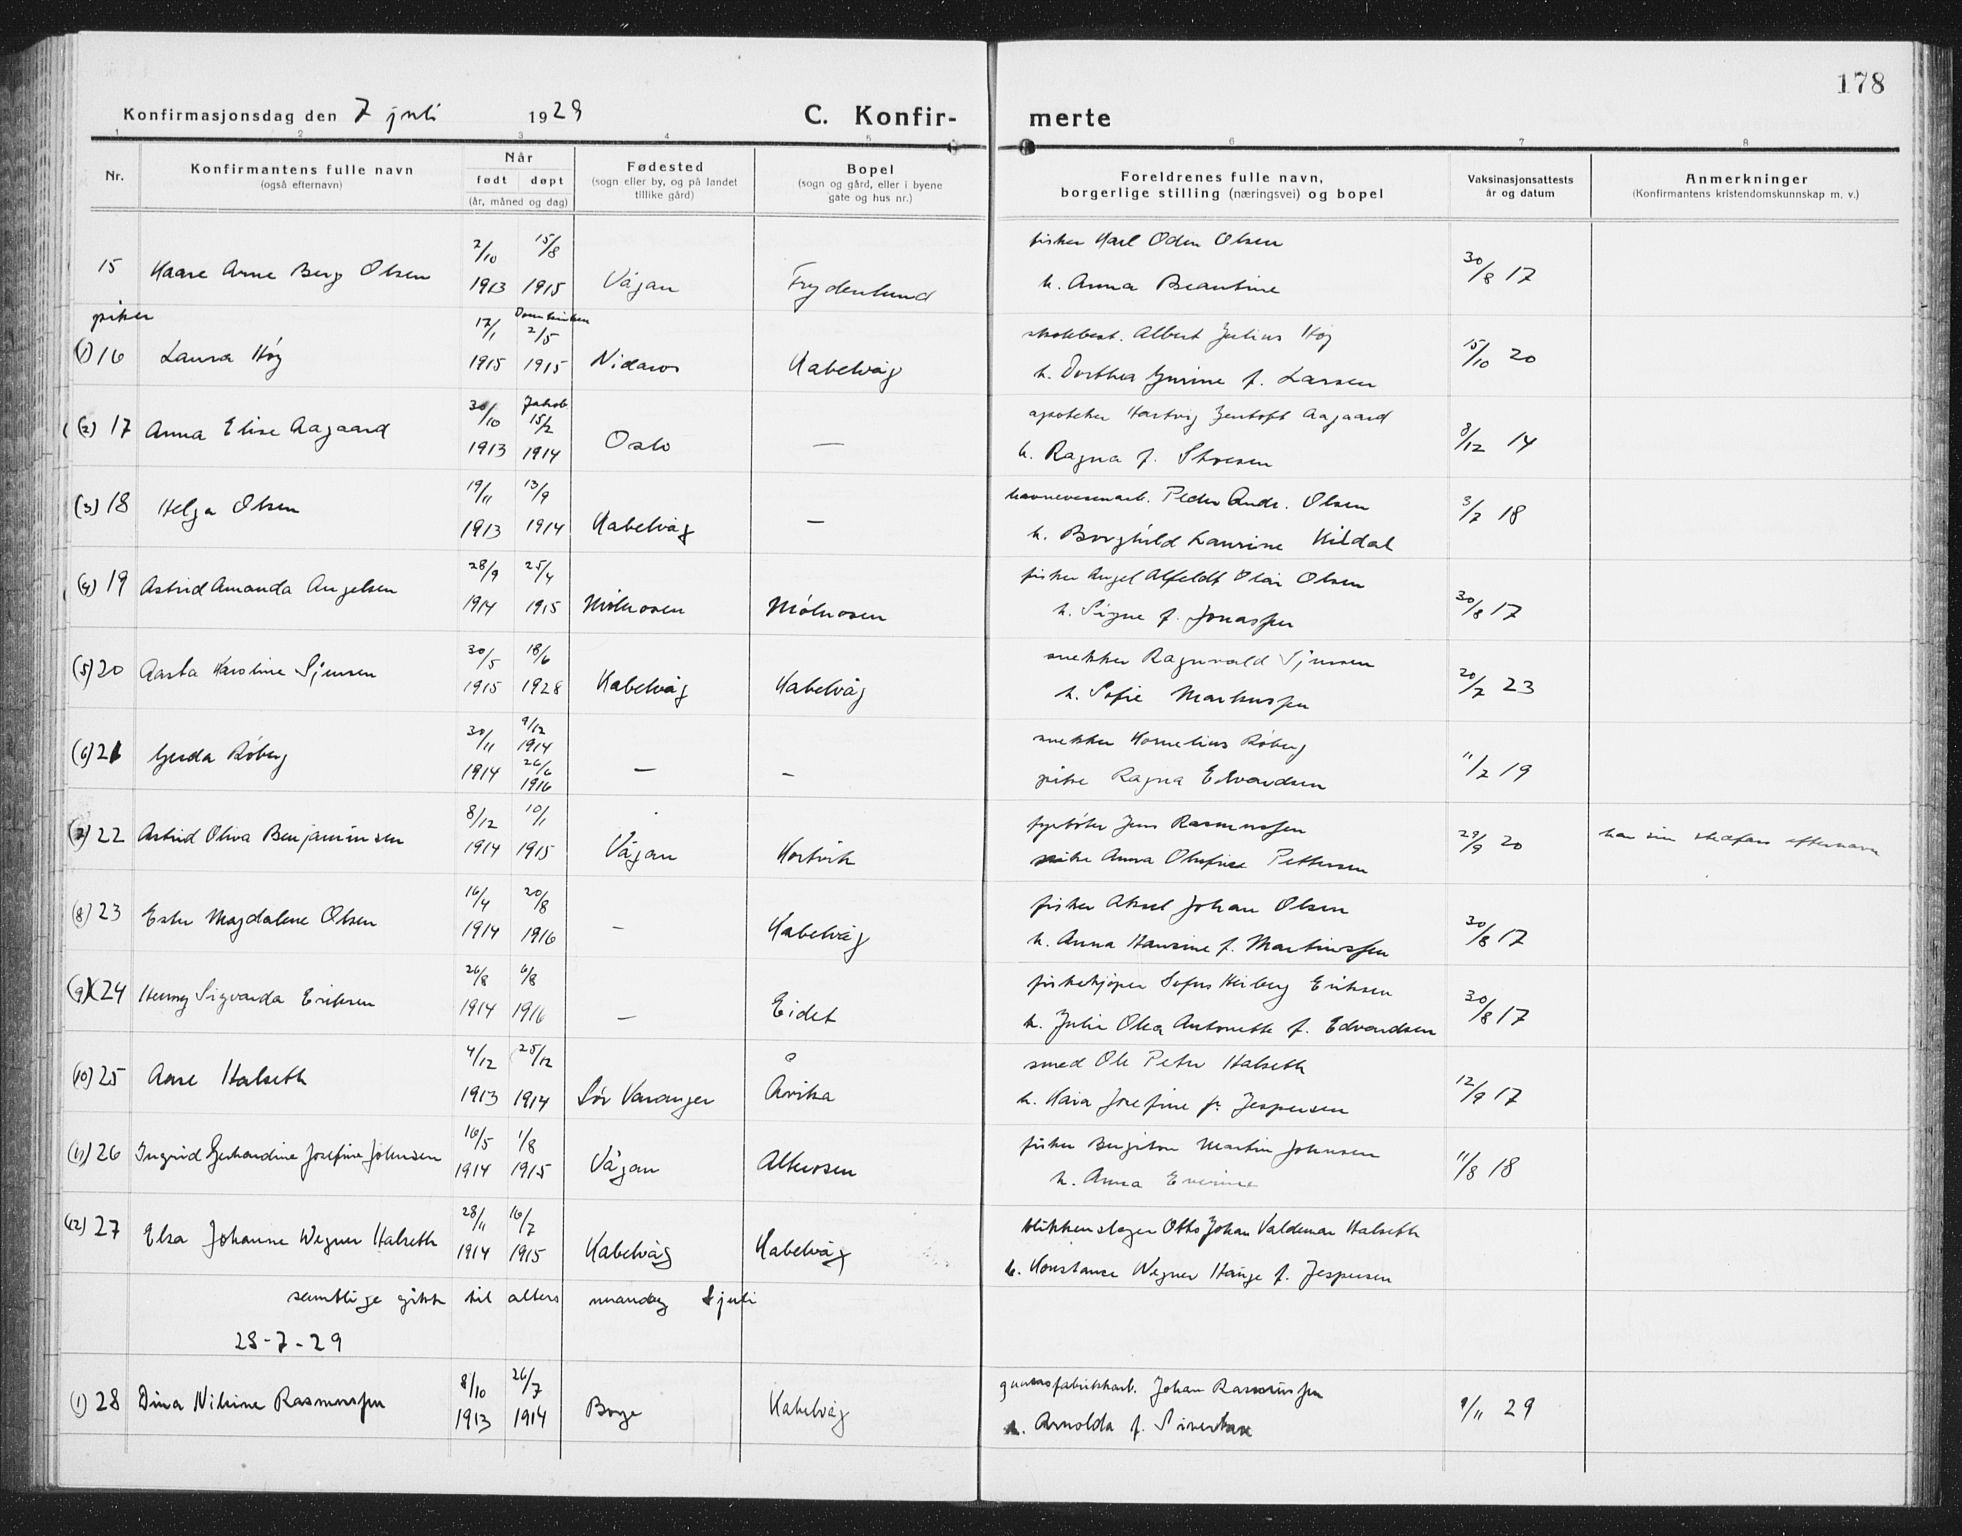 178
Konfirmasjonsdag den 7 juli 1929 C. Konfir- merte
1 2 3 4 5 6 7 8
Nr. Konfirmantens fulle navn (også efternavn) Når født døpt (år, måned og dag) Fødested (sogn eller by, og på landet tillike gård) Bopel (sogn og gård, eller i byene gate og hus nr.) Foreldrenes fulle navn, borgerlige stilling (næringsvei) og bopel Vaksinasjonsattests år og datum Anmerkninger (Konfirmantens kristendomskunnskap m. v.)
2/10 15/8 fisker Karl Oden Olsen
15 Kaare Arne Berg Olsen 1913 1915 Vågan Frydenlund h. Anna Beantine 30/8 17
piker
17/1 Domkirken 2/5 Albert Julius Høy
(1) 16 Laura Høy 1915 1915 Nidaros Kabelvåg h. Dorthea Gurine f. Larsen 15/10 20
30/10 Jakob 15/2 apoteker Hartvig Zentoft Aagaard
(2) 17 Anna Elise Aagaard 1913 1914 Oslo — h. Ragna f. 8/12 14
19/11 13/9 havnevesenarb. Peder Andr. Olsen
(3) 18 Helga Olsen 1913 1914 Kabelvåg — h. Borghild Laurine Kildal 3/7 18
28/9 25/4 fisker Angel Alfeldt Olai Olsen
(4) 19 Astrid Amanda Angelsen 1914 1915 Mölnosen Mölnosen h. Signe f. Jonassen 30/8 17
30/5 18/6 snekker Ragnvald Sjursen
(5) 20 Aasta Karoline Sjursen 1915 1928 Kabelvåg Kabelvåg h. Sofie Markussen 20/7 23
30/11 9/12 1914 snekker Kornelius Röberg
(6) 21 Gerda Röberg 1914 26/6 1916 — — pike Ragna Edvardsen 11/7 19
8/12 10/1 fyrbøter Jens Rasmussen
(7) 22 Astrid Oliva Benjaminsen 1914 1915 Vågan Hortvik pike Anna Olufine Pettersen 29/9 20 har sin stefars efternavn
16/4 20/8 fisker Aksel Johan Olsen
(8) 23 Ester Magdalene Olsen 1914 1916 — Kabelvåg h. Anna Hansine f. Martinussen 30/8 17
26/8 6/8 fiskekjøper Sofus Heiberg Eriksen
(9) 24 Henny Sigvarda Eriksen 1914 1916 — Eidet h. Julie Olea Antonette f. Edvardsen 30/8 17
4/12 25/12 smed Ole Peter Halseth
(10) 25 Aase Halseth 1913 1914 Sör Varanger Örvika h. Kaia Josefine f. Jespersen 12/9 17
16/5 1/8 fisker Birgiton Martin Johnsen
(11) 26 Ingrid Gerhardine Josefine Johnsen 1914 1915 Vågan Alternosen h. Anna 11/8 18
28/11 16/7 blikkenslager Otto Johan Valdemar Halseth
(12) 27 Elsa Johanne Wegner Halseth 1914 1915 Kabelvåg Kabelvåg h. Konstanse Wegner Hauge f. Jespersen
samtlige gikk til alters mandag 8 juli
28-7-29
8/10 26/7 guanofabrikkarb. Johan Rasmussen
(1) 28 Dina Nilsine Rasmussen 1913 1914 Borge Kabelvåg h. Arnolda f. Sivertsen 9/11 29